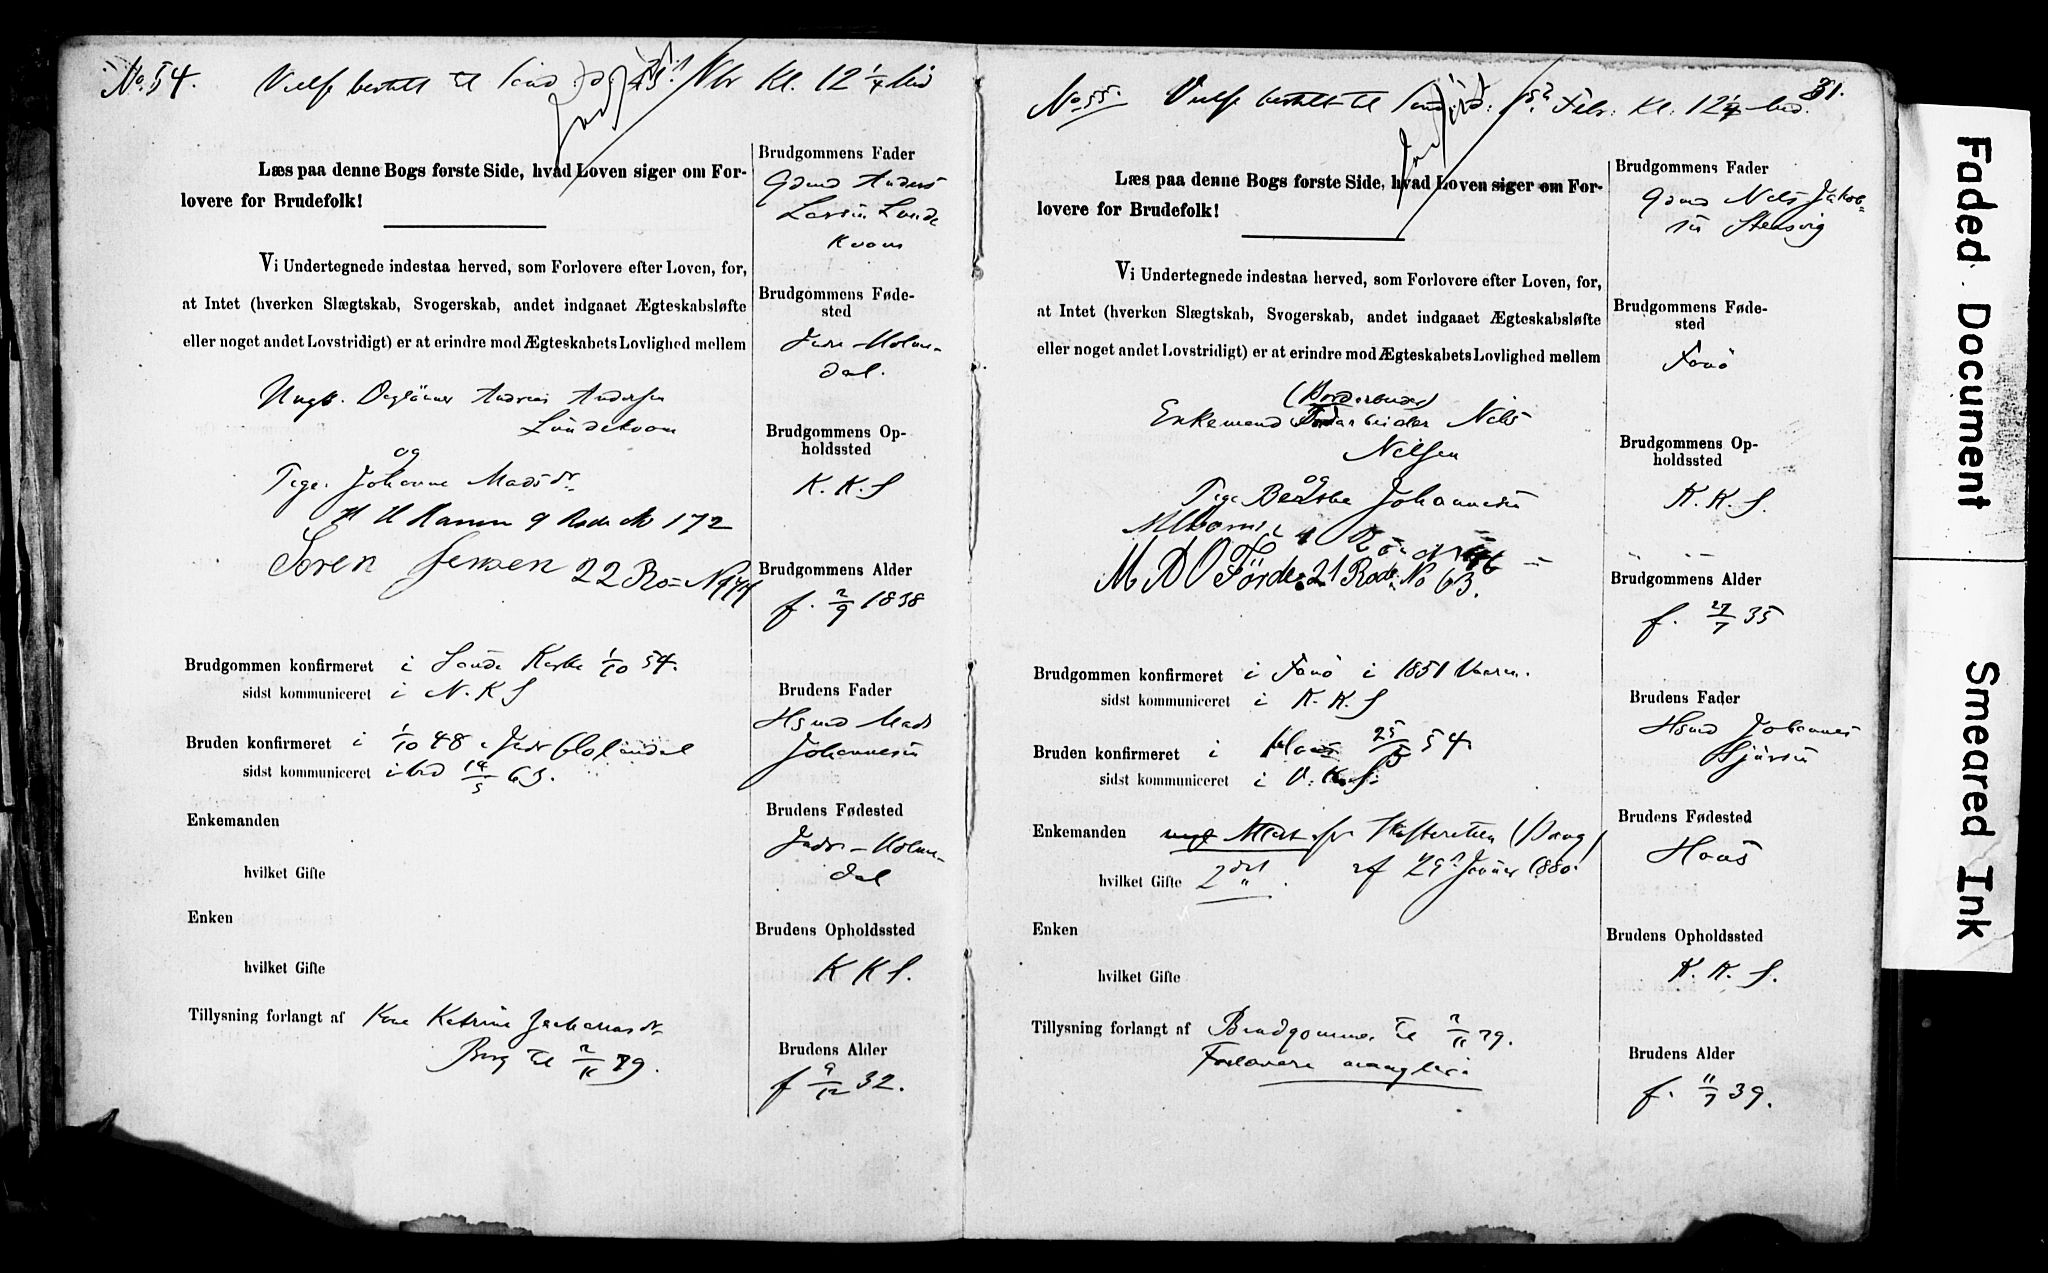 No. 54. Vielse bestilt til Kl. 12 1/4 Md
Læs paa denne Bogs første Side, hvad Loven siger om For-
lovere for Brudefolk!
Vi Undertegnede indestaa herved, som Forlovere efter Loven, for,
at Intet (hverken Slægtskab, Svogerskab, andet indgaaet Ægteskabsløfte
eller noget andet Lovstridigt) er at erindre mod Ægteskabets Lovlighed mellem
Ungk. Andreas Andersen
Lundekvam
og
Pige. Johanne Madsdr
9 Rode No 172
Soren Jensen 22 Ro=
Brudgommen konfirmeret i Søude Kirke 1/10 54.
sidst kommuniceret i N. K. S
Bruden konfirmeret i 1/10 48 i Indr Holmedal
sidst kommuniceret ibd 14/5 63.
Enkemanden
hvilket Gifte
Enken
hvilket Gifte
Tillysning forlangt af Kone Katrine Zachariasdr
Berg til 2/11 79.
Brudgommens Fader
Gdmd Anders
Larsen Lunde
kvam
Brudgommens Føde-
sted
Indr-Holme-
dal.
Brudgommens Op-
holdssted
K. K. S
Brudgommens Alder
f. 2/9 1838
Brudens Fader
Hsmd Mads
Johannesen
Brudens Fødested
Indr-Holme-
dal
Brudens Opholdssted
K K S.
Brudens Alder
f 9/12 32.
31.
No 55. Vielse bestilt til Febr: Kl. 12 1/4 Md.
Læs paa denne Bogs første Side, hvad Loven siger om For-
lovere for Brudefolk!
Vi Undertegnede indestaa herved, som Forlovere efter Loven, for,
at Intet (hverken Slægtskab, Svogerskab, andet indgaaet Ægteskabsløfte
eller noget andet Lovstridigt) er at erindre mod Ægteskabets Lovlighed mellem
Enkemand Nils
Nilsen
og
Pige Johannesen
M D O Förde 21 Rode No 63.
Brudgommen konfirmeret i Fanö i 1851 Vaaren.
sidst kommuniceret i K. K. S
Bruden konfirmeret i Haus 25/5 54
sidst kommuniceret i D. K. S.
Enkemanden Attest fra Skifteretten
hvilket Gifte 2det af 29 Januar 1880.
Enken
hvilket Gifte
Tillysning forlangt af Brudgommen til 2/11 79.
Forlovere mangler
Brudgommens Fader
Gdmd Nils Jakob-
sen Stensvig
Brudgommens Føde-
sted
Fanö
Brudgommens Op-
holdssted
K. K. S.
Brudgommens Alder
f. 27/7 35
Brudens Fader
Hsmd Johannes
Brudens Fødested
Haus
Brudens Opholdssted
K. K. S.
Brudens Alder
f. 11/7 39.
Faded Document
Smeared Ink